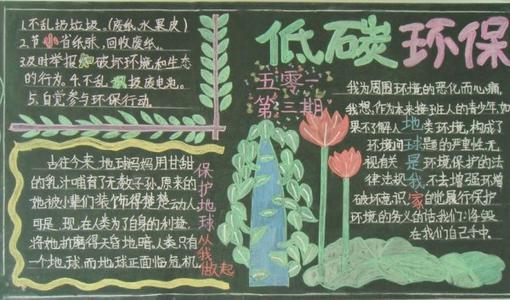 1.不乱扔垃圾。(废纸,水果皮)
2.节 省纸张,回收废纸。
3.及时举报 破坏环境和生态
的行为.4.不乱扔废电池。
5.自觉参与环保行动.
低碳环保
五零一
第三期
古往今来,地球妈妈用甘甜
的乳汁哺育了无数子孙.原来的
她被小辈们装饰得楚楚动人.
可是,现在人类为了自身的利益,
将她折磨得天昏地暗.人类只有
一个地球,而地球正面临危机,
保护地球从我做起
我为周围环境的恶化而心痛,
我想,作为未来接班人的青少年,如
果不了解人地类环境,构成了
环境间球题的严重性,无
视有关是环境保护的法
律法规我,不去增强环增
破坏意识家的觉展行保护
环境的务义的话我们:将毁
在我们自己手中.